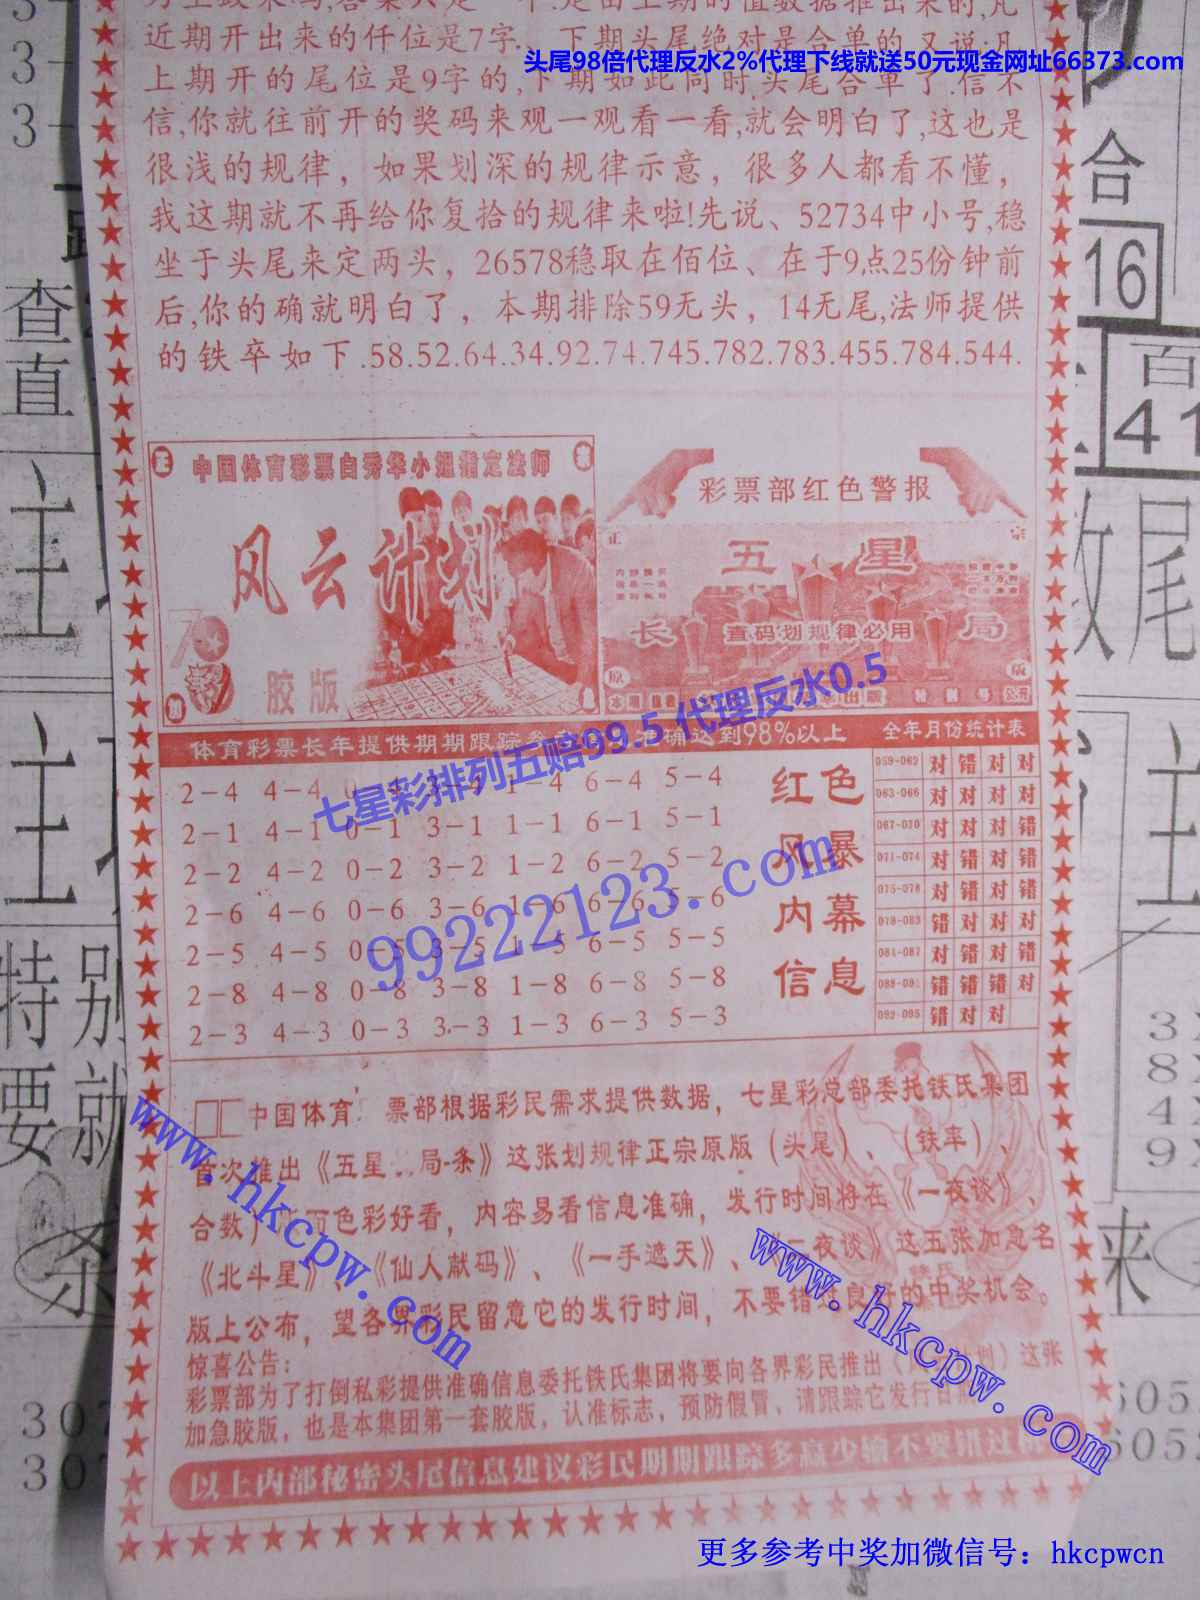 近期开出来的仟位是7字.
下期头尾绝对是合单的.又说:凡
头尾98倍代理反水2%代理下线就送50元现金网址66373.com
上期开的尾位是9字的,下期如此同时,头尾合单了.信不
信,你就往前开的奖码来观一观看一看,就会明白了,这也是
很浅的规律，如果划深的规律示意，很多人都看不懂，
我这期就不再给你复拾的规律来啦!先说、52734中小号,稳
坐于头尾来定两头，26578稳取在佰位、在于9点25份钟前
后,你的确就明白了，本期排除59无头，14无尾,法师提供
的铁卒如下.58.52.64.34.92.74.745.782.783.455.784.544.
合
16
百
41
查
直
主
尾
主
主
特别
要就
杀
来
正
中国体育彩票白秀华小姐指定法师
风云计划
胶版
彩票部红色警报
正
宗
五星
长
直码划规律必用
局
原
版
七星彩排列五赔99.5 代理反水0.5
体育彩票长年提供期期跟踪
准确达到98%以上
全年月份统计表
2-4 4-4 0-4 3-4 1-4 6-4 5-4
2-1 4-1 0-1 3-1 1-1 6-1 5-1
2-2 4-2 0-2 3-2 1-2 6-2 5-2
2-6 4-6 0-6 3-6 1-6 6-6 5-6
2-5 4-5 0-5 3-5 1-5 6-5 5-5
2-8 4-8 0-8 3-8 1-8 6-8 5-8
2-3 4-3 0-3 3-3 1-3 6-3 5-3
红色
风暴
内幕
信息
059-062 对 错 对 对
063-066 对 对 对 对
067-070 对 对 对 错
071-074 对 错 对 错
075-078 对 错 对 错
079-083 错 对 错 对
084-087 对 对 错 错
088-091 错 错 错 对
092-095 错 对 对
99222123.com
中国体育
票部根据彩民需求提供数据，七星彩总部委托铁氏集团
首次推出《五星
局-条》这张划规律正宗原版（头尾）、（铁率）、（
合数）
色彩好看，内容易看信息准确，发行时间将在《一夜谈》、
《北斗星》
《仙人献码》、《一手遮天》、
二夜谈》这五张加急名
版上公布，望各界彩民留意它的发行时间，不要错过良好的中奖机会。
惊喜公告：
彩票部为了打倒私彩提供准确信息委托铁氏集团将要向各界彩民推出（
划）这张
加急胶版，也是本集团第一套胶版，认准标志，预防假冒，请跟踪它发行日
以上内部秘密头尾信息建议彩民期期跟踪多赢少输不要错过
www.hkcpw.com
www.hkcpw.com
更多参考中奖加微信号：hkcpwcn